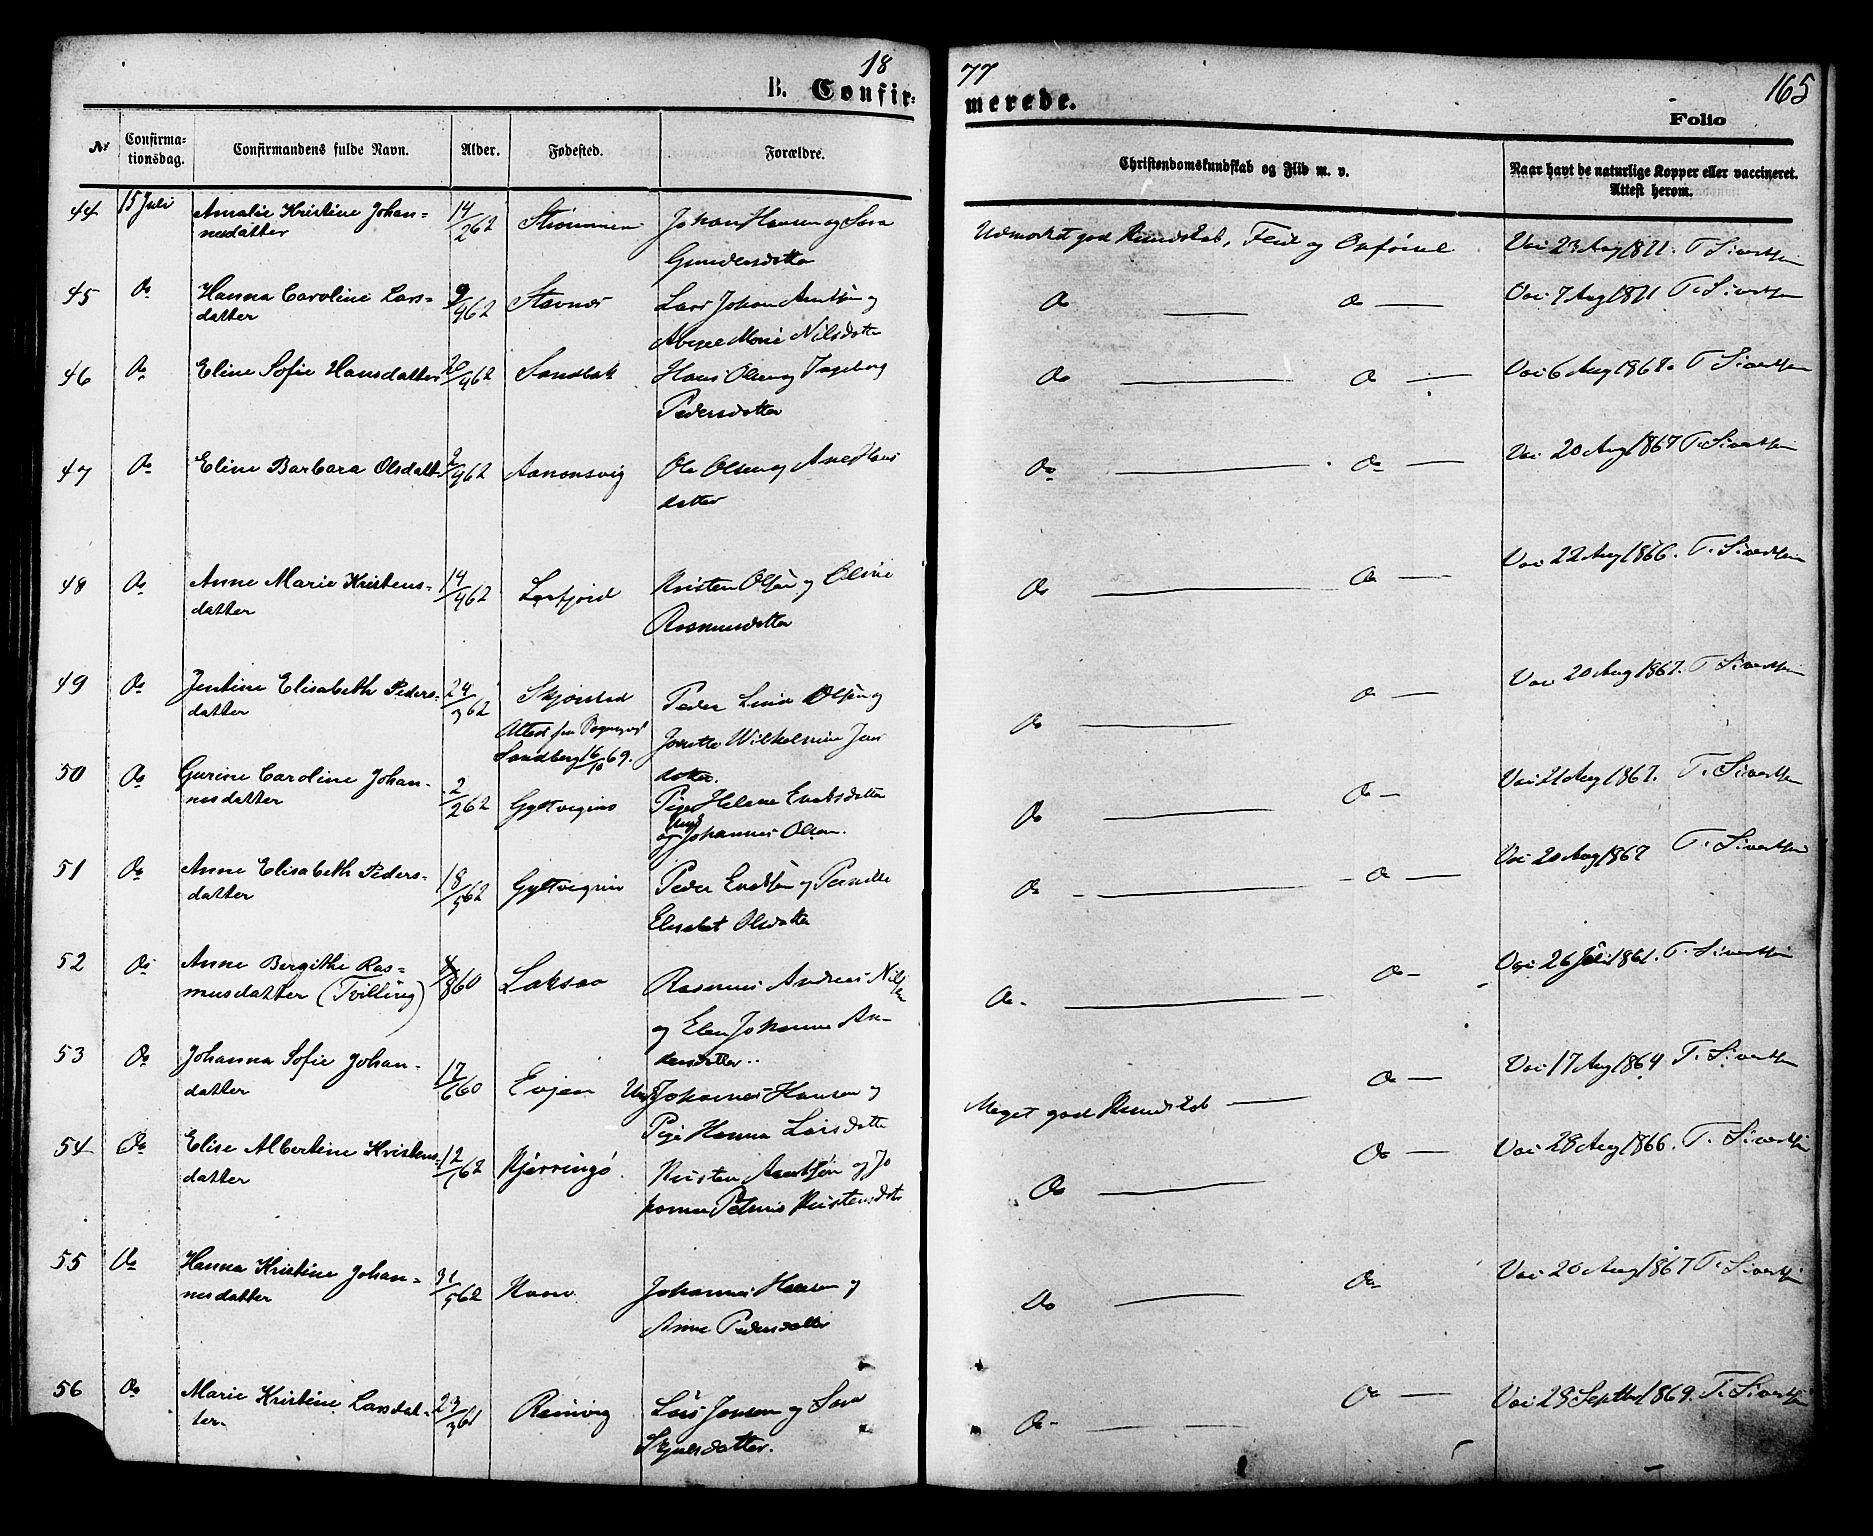 18
B. Confir-
77
merede.
165
Folio
№
Confirma-
tionsdag.
Confirmandens fulde Navn.
Alder.
Fødested.
Forældre.
Christendomskundskab og Flid m. v.
Naar havt de naturlige Kopper eller vaccineret.
Attest herom.
44 15 Juli Amalie Kristine Johan- 14/2 62 Strømmen Johan Hansen og Sara
nesdatter Gundersdatter
Udmærket god Kundskab, Flid og Opførsel Vac. 23 Aug 1871. T. Sivertsen
45 Do Hanna Caroline Lars- 9/4 62 Stavnes Lars Johan Arntsen og
datter Abigel Marie Nilsdatter
Do Do Vac. 7 Aug 1871 T. Sivertsen
46 Do Eline Sofie Hansdatter 20/4 62 Sandbak Hans Olsen og Ingeborg
Pedersdatter
Do Do Vac. 6 Aug 1868. T. Sivertsen
47 Do Eline Barbara Olsdatt. 2/4 62 Aanonsvig Ole Olsen og Ane Hans
datter
Do Do Vac. 20 Aug 1867 T. Sivertsen
48 Do Anne Marie Kristens- 14/4 62 Kristen Olsen og Oline
datter Rasmusdatter
Do Do Vac. 22 Aug 1866. T. Sivertsen
49 Do Jentine Elisabeth Peders- 24/3 62 Skjørsted Peder Olsen og
datter Attest fra
Sandberg 16/10 69. Wilhelmine Jens
datter.
Do Do Vac. 20 Aug 1867. T. Sivertsen
50 Do Gurine Caroline Johan- 2/2 62 Gyltvignes Pige Helene
nesdatter og Ung Johannes Olsen.
Do Do Vac. 21 Aug 1867. T. Sivertsen
51 Do Anne Elisabeth Peders- 18/5 62 Gyltvignes Peder og Pernille
datter Elisabet Olsdatter
Do Do Vac. 20 Aug 1867 T. Sivertsen
52 Do Anne Bergithe Ras- 60 Laksaa Rasmus Andreas Nilsen
musdatter (Tvilling) og Elen Johanna An-
dersdatter
Do Do Vac. 26 Juli 1861. T. Sivertsen
53 Do Johanna Sofie Johan- 17/6 60 Evjen Ung. Johannes Hansen og
datter Pige Hanna Larsdatter
Meget god Kundskab Do Vac. 17 Aug 1864 T. Sivertsen
54 Do Elise Albertine Kristens- 12/1 62 Kjerringø. Kristen Arntsen og Jo
datter hanna Kristensdatter
Do Do Vac. 28 Aug 1866. T. Sivertsen
55 Do Hanna Kristine Johan- 31/5 62 Johannes Hansen og
nesdatter Anne Pedersdatter
Do Do Vac. 20 Aug 1867 T. Sivertsen
56 Do Marie Kristine Larsdat- 23/3 61 Reinvig Lars Jensen og Sara
ter. Skjelsdatter.
Do Do Vac. 28 Septbr 1869. T. Sivertsen